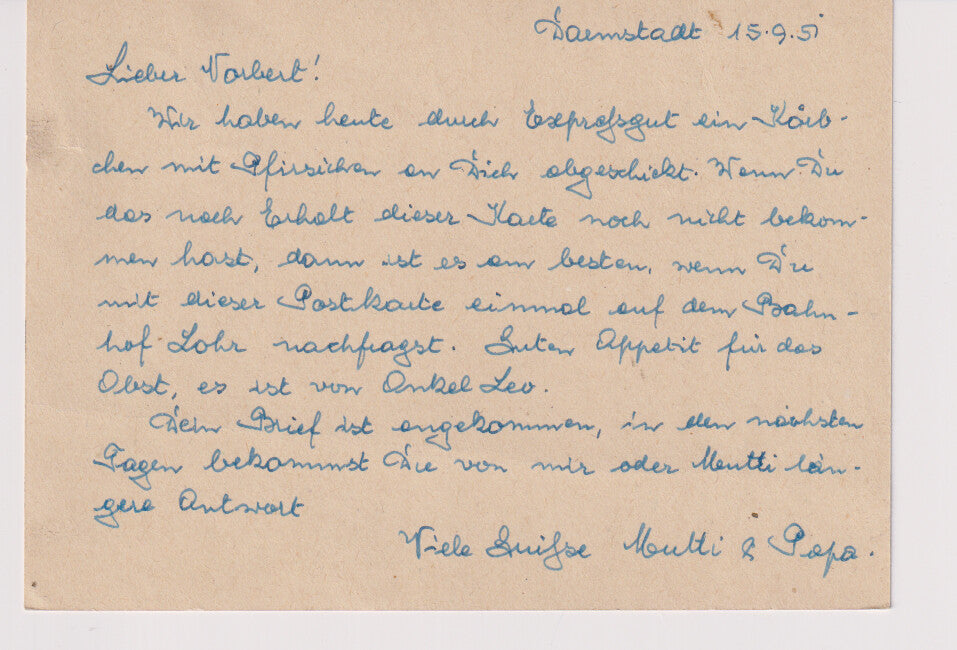 Darmstadt 15.9.51
Lieber Norbert!
Wir haben heute durch Expreßgut ein Körb-
chen mit Pfirsichen an Dich abgeschickt. Wenn Du
das nach Erhalt dieser Karte noch nicht bekom-
men hast, dann ist es am besten, wenn Du
mit dieser Postkarte einmal auf dem Bahn-
hof Lohr nachfragst. Guten Appetit für das
Obst, es ist von Onkel Leo.
Dein Brief ist angekommen, in den nächsten
Tagen bekommst Du von mir oder Mutti län-
gere Antwort
Viele Grüße Mutti & Papa.